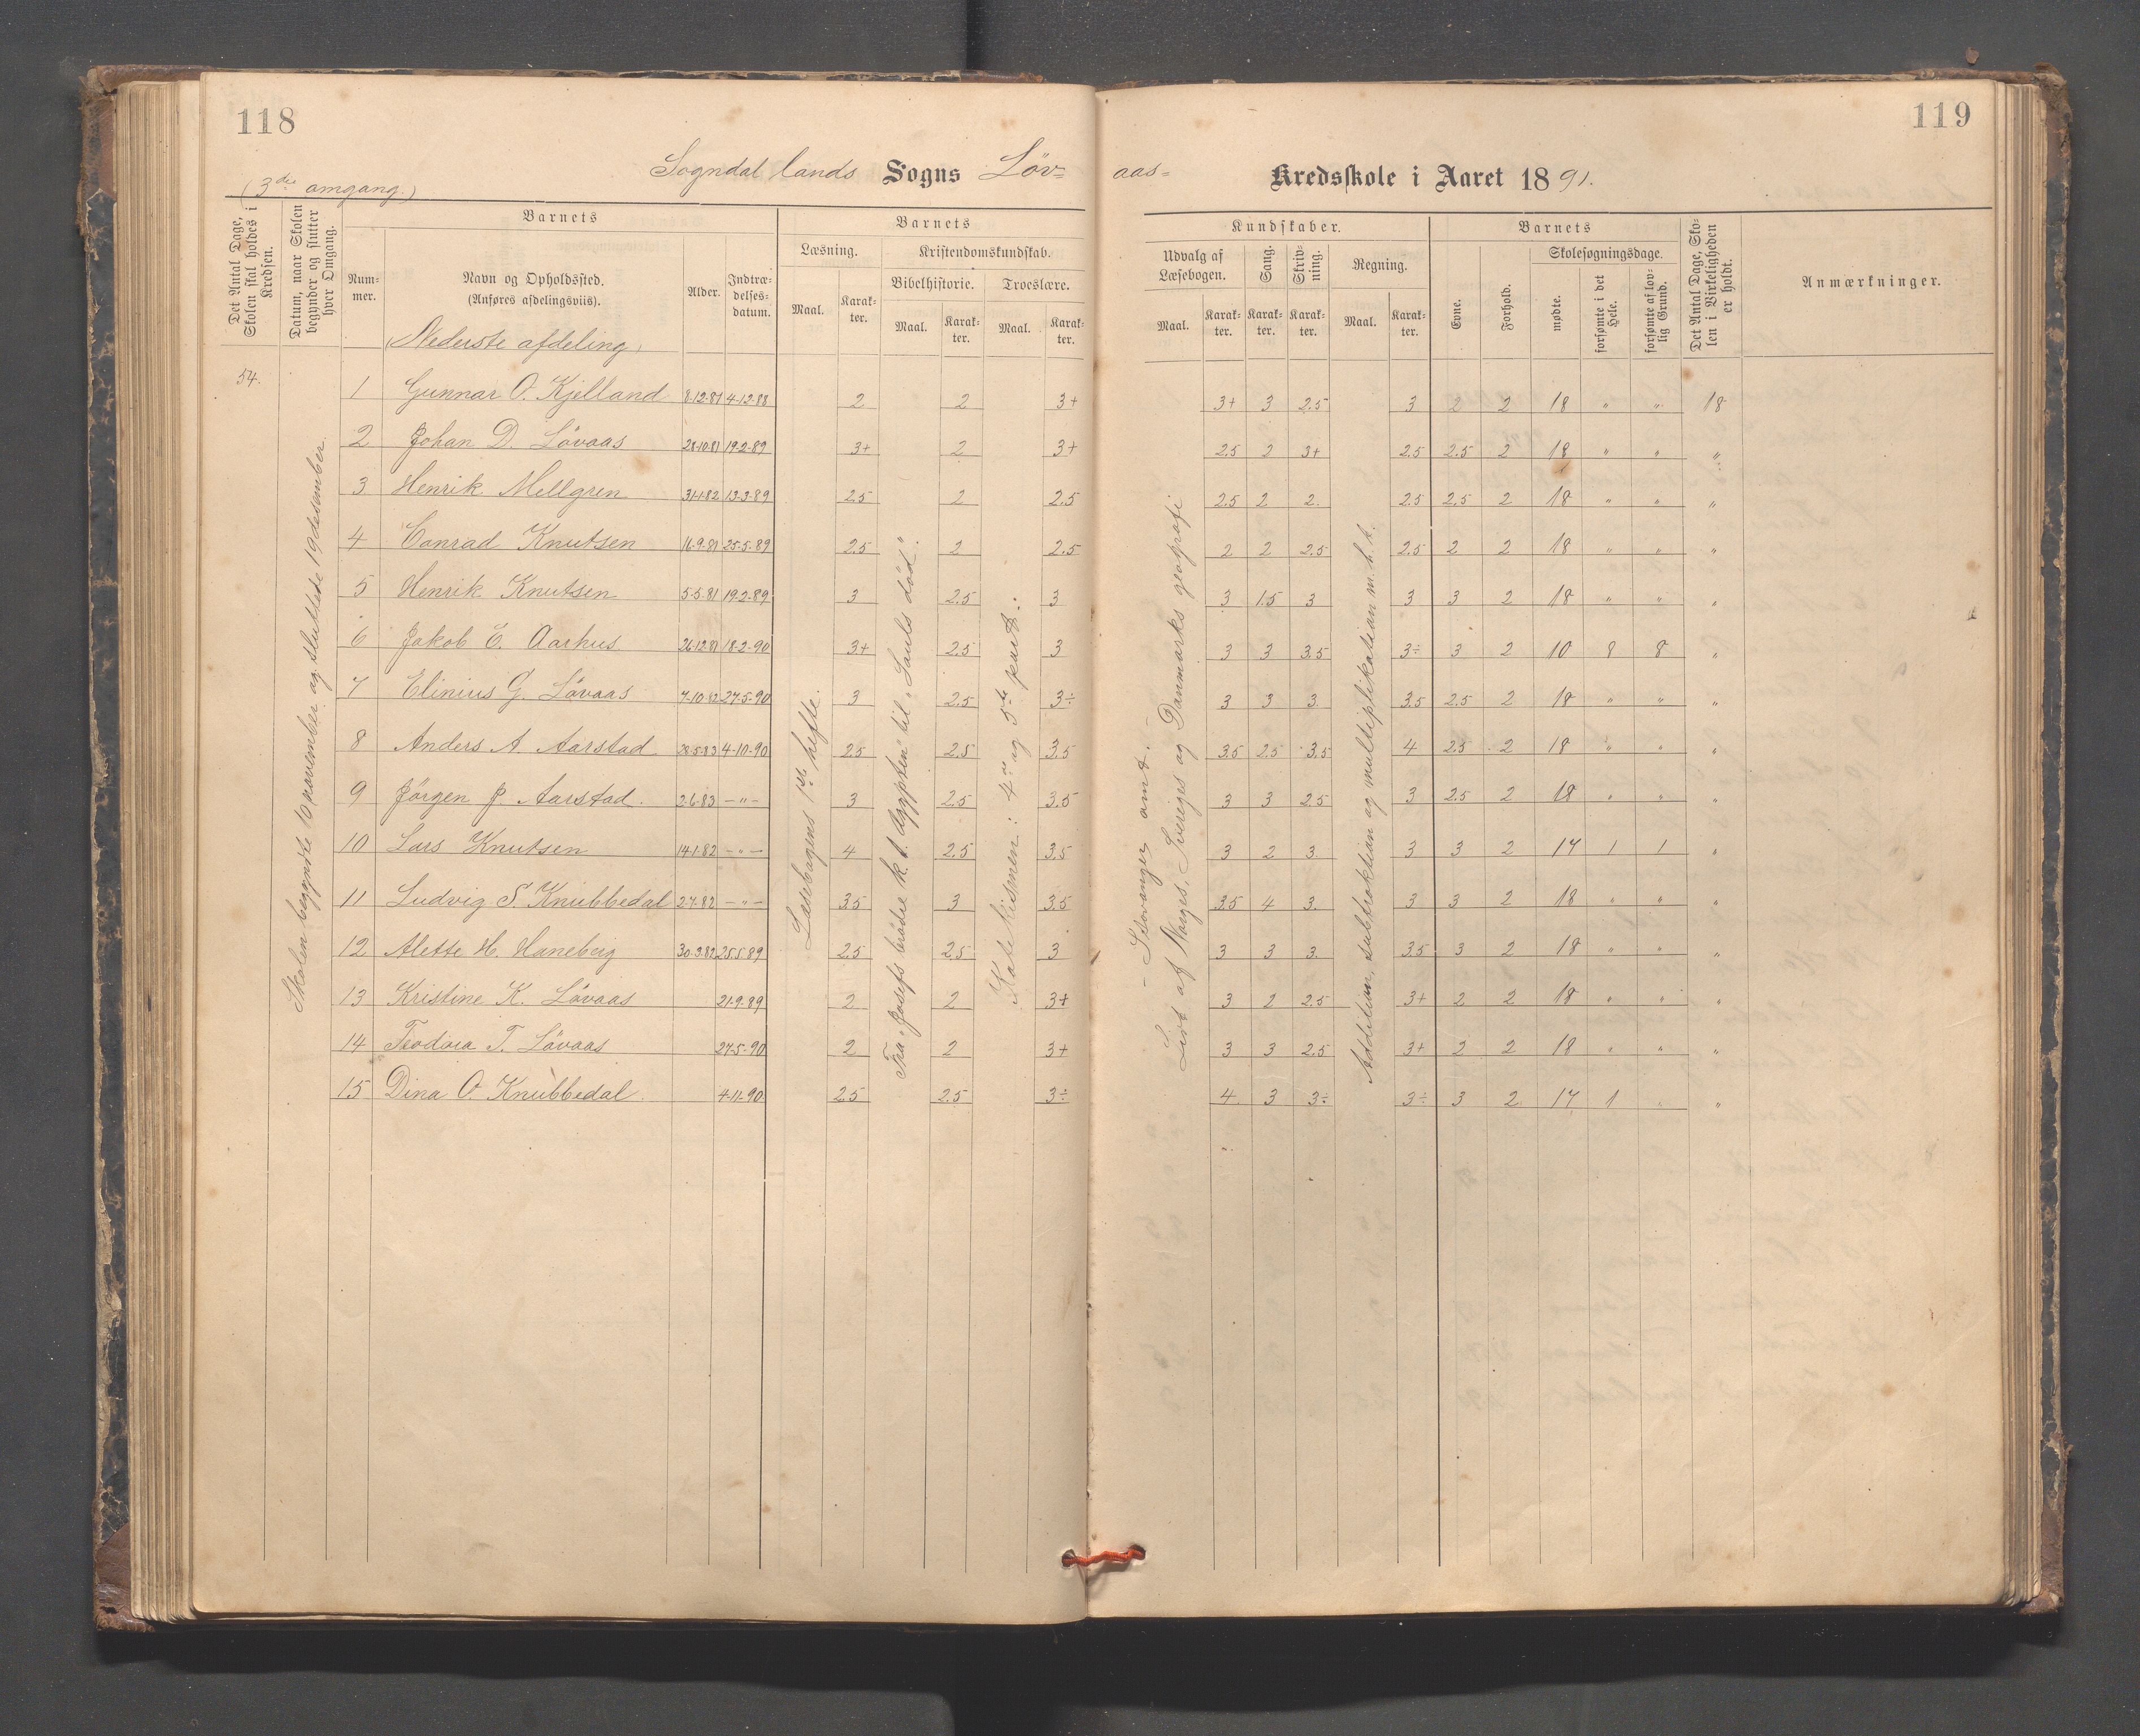 118
119
(3die omgang.)
Sogndal lands Sogns Löv= aas= Kredsskole i Aaret 1891.
Det Antal Dage, Skolen skal holdes i Kredsen.
Datum, naar Skolen begynder og slutter hver Omgang.
Barnets
Nummer.
Navn og Opholdssted.
(Anføres afdelingsviis).
(Nederste afdeling)
Alder.
Indtrædelsesdatum.
Barnets
Læsning.
Maal.
Karakter.
Kristendomskundskab.
Bibelhistorie.
Maal.
Karakter.
Troeslære.
Maal.
Karakter.
Kundskaber.
Udvalg af Læsebogen.
Maal.
Karakter.
Sang.
Karakter.
Skrivning.
Karakter.
Regning.
Maal.
Karakter.
Barnets
Evne.
Forhold.
Skolesøgningsdage.
mødte.
forsømte i det Hele.
forsømte af lovlig Grund.
Det Antal Dage, Skolen i Virkeligheden er holdt.
Anmærkninger.
54.
Skolen begyndte 16 november og sluttede 19 desember.
Læsebogens 1ste hefte.
Fra "Josefs brödre k. t. Ægypten" til "Sauls död".
Katekismen: 4de og 5te part.
- Stavanger amt. -
Lidt af Norges, Sveriges og Danmarks geografi
Addition, subtraktion og multiplikation m. h. t.
1 Gunnar O. Kjelland 8-12-81 4-12-88 2 2 3+ 3+ 3 2,5 3 2 2 18 " " 18
2 Johan D. Lövaas 28-10-81 19-2-89 3+ 2 3+ 2.5 2 3+ 2.5 2.5 2 18 " " "
3 Henrik Mellgren 31-1-82 13-3-89 2.5 2 2.5 2.5 2 2. 2.5 2.5 2 18 " " "
4 Conrad Knutsen 16-9-81 25-5-89 2.5 2 2.5 2 2 2.5 2.5 2 2 18 " " "
5 Henrik Knutsen 5-5-81 19-2-89 3 2.5 3 3 1.5 3 3 3 2 18 " " "
6 Jakob E. Aarhus 26-12-81 18-2-90 3+ 2.5 3 3 3 3.5 3÷ 3 2 10 8 8 "
7 Elinius G. Lövaas 7-10-82 27-5-90 3 2.5 3÷ 3 3 3. 3.5 2.5 2 18 " " "
8 Anders A. Aarstad 28-5-83 4-10-90 2.5 2.5 3.5 3.5 2.5 3.5 4 2.5 2 18 " " "
9 Jörgen J. Aarstad. 2-6-83 -"- 3 2.5 3.5 3 3 2.5 3 2.5 2 18 " " "
10 Lars Knutsen 14-1-82 -"- 4 2.5 3.5 3 2 3. 3 3 2 17 1 1 "
11 Ludvig S. Knubbedal 2-7-82 -"- 3.5 3 3.5 3.5 4 3. 3 3 2 18 " " "
12 Alette H. Haneberg 30-3-82 25-5-89 2.5 2.5 3 3 3 3. 3.5 3 2 18 " " "
13 Kristine K. Lövaas 21-9-89 2 2 3+ 3 2 2.5 3+ 2 2 18 " " "
14 Teodora T. Lövaas 27-5-90 2 2 3+ 3 3 2.5 3+ 2 2 18 " " "
15 Dina O. Knubbedal 4-11-90 2.5 2.5 3÷ 4 3 3÷ 3÷ 3 2 17 1 " "